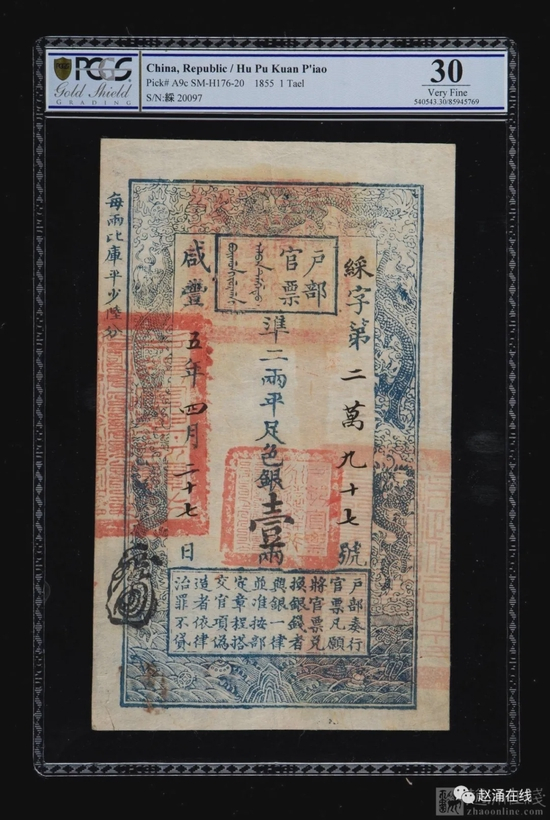 PCGS
Gold Shield
GRADING
China, Republic / Hu Pu Kuan P'iao
Pick# A9c SM-H176-20 1855 1 Tael
S/N:綵 20097
30
Very Fine
540543.30/85945769
戶部
官票
綵字第二萬九十七號
準二兩平足色銀壹兩
咸豐五年四月二十七日
每兩比庫平少陸分
戶部奏行
官票凡願
將官票兌
換銀錢者
與銀一律
並准按部
定章程搭
交官項偽
造者依律
治罪不貸
赵涌在线
zhaoonline.com